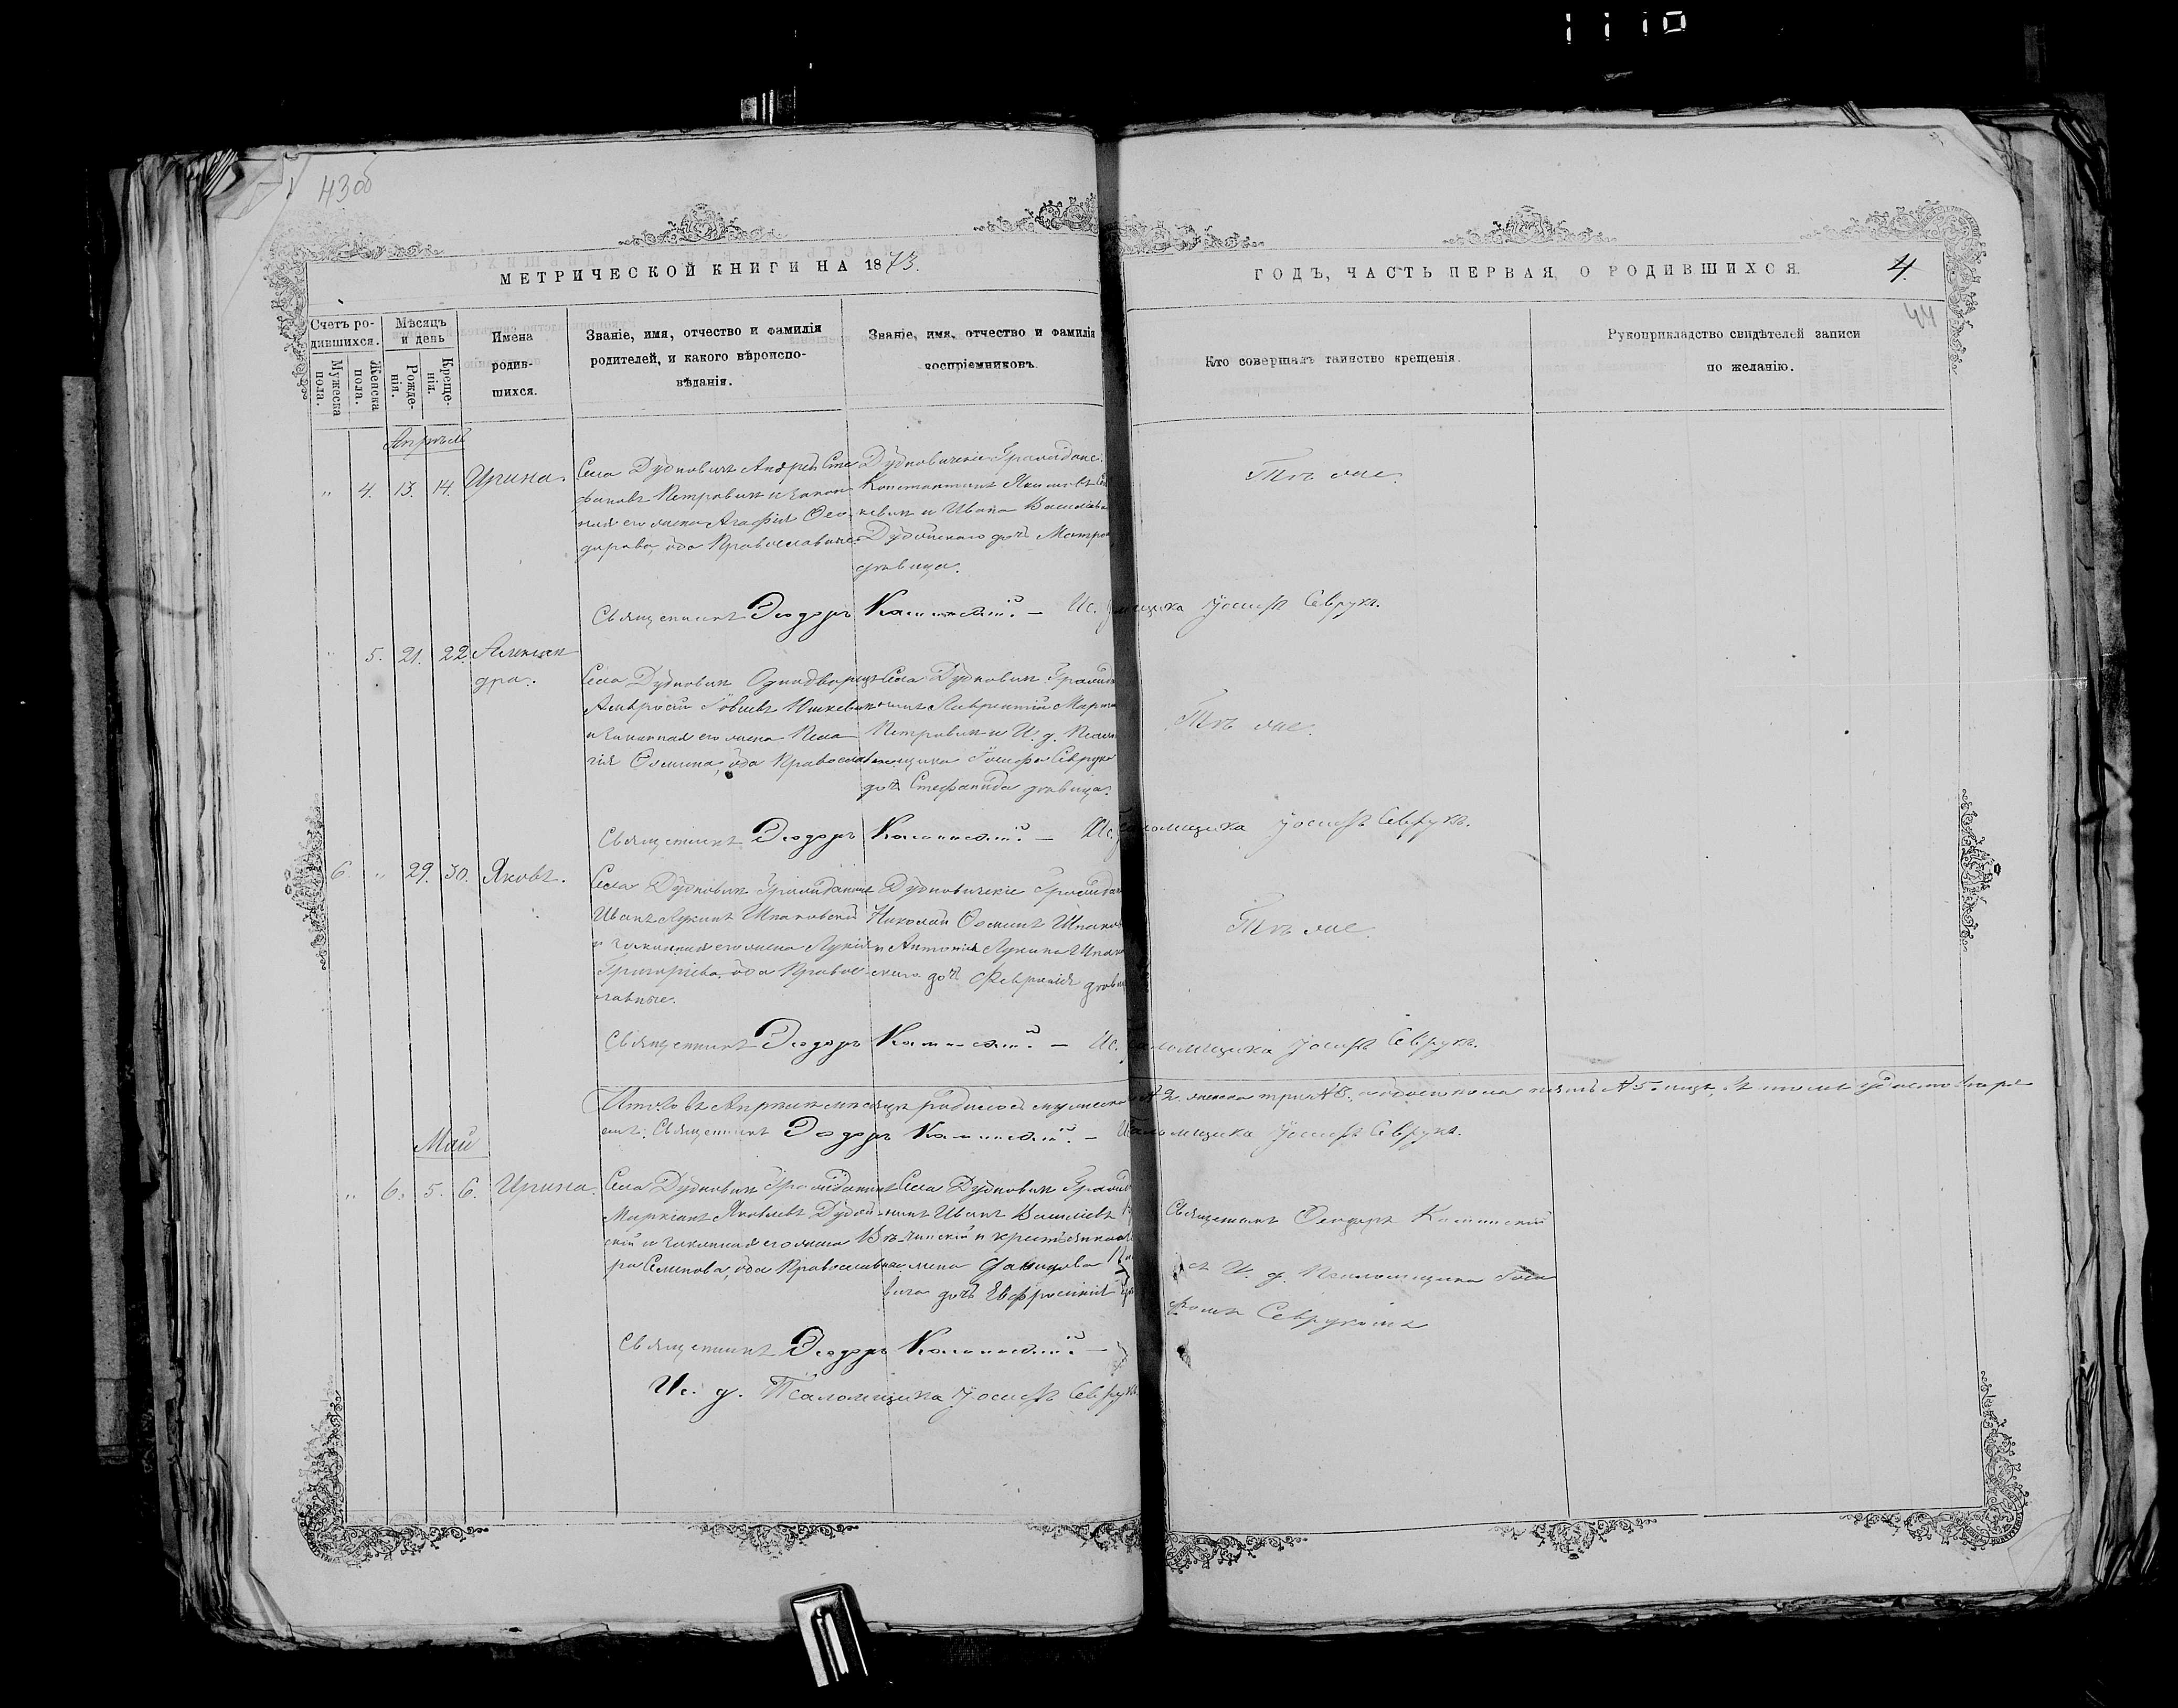 43об
МЕТРИЧЕСКОЙ КНИГИ НА 1873.
ГОДЪ, ЧАСТЬ ПЕРВАЯ, О РОДИВШИХСЯ.
4.
44
Счетъ ро-
дившихся.
Мужеска пола.
Женска пола.
Мѣсяцъ
и день
Рожде-
нія.
Креще-
нія.
Имена
родив-
шихся.
Званіе, имя, отчество и фамилія
родителей, и какого вѣроиспо-
вѣданія.
Званіе, имя, отчество и фамилія
воспріемниковъ.
Кто совершалъ таинство крещенія.
Рукоприкладство свидѣтелей записи
по желанію.
Апрѣль
„ 4. 13. 14. Ирина.
Села Дубновичъ Андрей Сте
фановъ Петровичъ и закон
ная его жена Агафія Ѳео-
дорова, оба Православные.
Дубновичскіе Гражданс.
Константинъ Якимовъ
и Ивана Васильева
Дубойскаго дочь Матро
дѣвица.
Тѣ же.
Священникъ Ѳеодоръ Каминскій. — Ис. Іосифъ Севрукъ.
„ 5. 21. 22. Алексан
дра.
Села Дубновичъ Однодворецъ
Амвросій Іовлевъ Юшкевичъ
и законная его жена Пела
гія Ѳомина, оба Православные
Села Дубновичъ Гражд
Лаврентій Марти
Петровичъ и И. д. Псал
мщика Іосифа Севрука
дочь Стефанида дѣвица.
Тѣ же.
Священникъ Ѳеодоръ Каминскій. — Ис. Псаломщика Іосифъ Севрукъ.
6. „ 29. 30. Яковъ.
Села Дубновичъ Гражданинъ
Иванъ Лукинъ Шпаковскій
и законная его жена Лукія
Григоріева, оба Правос-
лавные.
Дубновичскіе Граждан
Николай Ѳоминъ Шпаков
и Антонія Лукина Шпаков
скаго дочь Февронія дѣвиц
Тѣ же.
Священникъ Ѳеодоръ Каминскій. — Ис. Псаломщика Іосифъ Севрукъ.
Итого въ Апрѣлѣ мѣсяцѣ родилось мужеска № 2. женска три № 3., а обоего пола пять № 5. лицъ, въ томъ удостовѣря
емъ: Священникъ Ѳеодоръ Каминскій. — Псаломщика Іосифъ Севрукъ.
Май
„ 6. 5. 6. Ирина.
Села Дубновичъ Гражданинъ
Маркіанъ Яковлевъ Дубой-
скій и законная его жена Вѣ-
ра Семенова, оба Православные
Села Дубновичъ Гражд
нинъ Иванъ Васильевъ
и крестьянка
дочь Евфросинія
Священникъ Ѳеодоръ Каминскій
съ И. д. Псаломщика Іоси
фомъ Севрукомъ
Священникъ Ѳеодоръ Каминскій. —
Ис. д. Псаломщика Іосифъ Севрукъ.